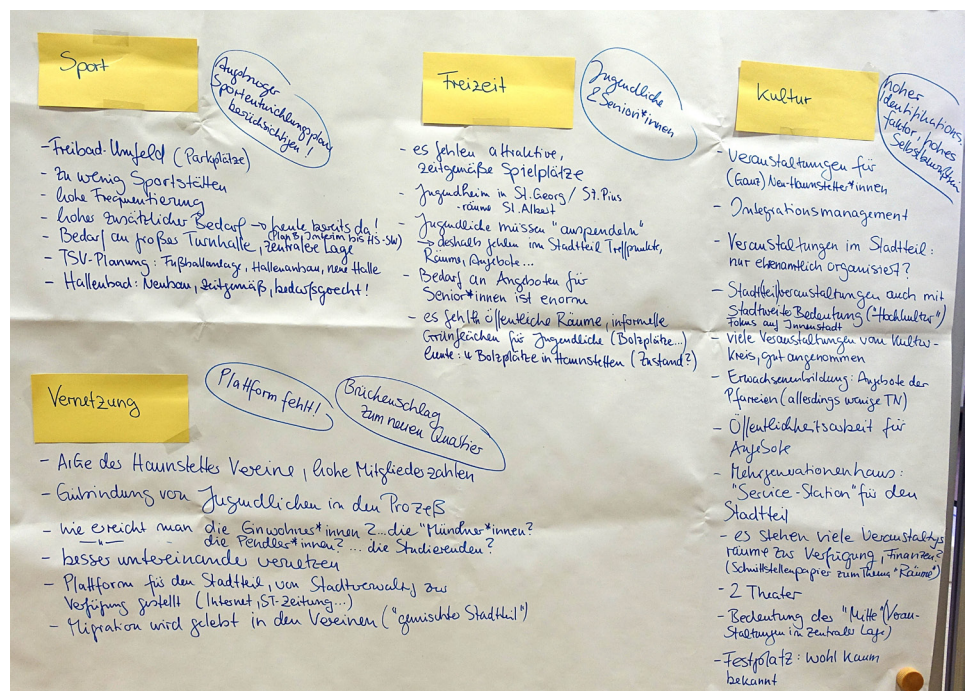 Sport
Augsburger
Sportentwicklungsplan
berücksichtigen!
- Freibad-Umfeld (Parkplätze)
- zu wenig Sportstätten
- hohe Frequentierung
- hoher zusätzlicher Bedarf → heute bereits da!
(Plan B, Interim bis HS-SW)
- Bedarf an großer Turnhalle, zentrale Lage
- TSV-Planung: Fußballanlage, Hallenanbau, neue Halle
- Hallenbad: Neubau, zeitgemäß, bedarfsgerecht!
Freizeit
Jugendliche
& Senior*innen
- es fehlen attraktive,
zeitgemäße Spielplätze
- Jugendheim in St. Georg / St. Pius
-räume St. Albert
- Jugendliche müssen "auspendeln"
→ deshalb fehlen im Stadtteil Treffpunkte,
Räume, Angebote...
- Bedarf an Angeboten für
Senior*innen ist enorm
- es fehlen öffentliche Räume, informelle
Grünflächen für Jugendliche (Bolzplätze...)
heute: 4 Bolzplätze in Haunstetten (Zustand?)
Kultur
hoher
Identifikations-
faktor, hohes
Selbstbewußtsein
- Veranstaltungen für
(Ganz) Neu-Haunstetter*innen
- Integrationsmanagement
- Veranstaltungen im Stadtteil:
nur ehrenamtlich organisiert?
- Stadt(teil)veranstaltungen auch mit
Stadtweite Bedeutung ("Hochkultur")
Fokus auf Innenstadt
- viele Veranstaltungen vom Kultur-
kreis, gut angenommen
- Erwachsenenbildung: Angebote der
Pfarreien (allerdings wenige TN)
- Öffentlichkeitsarbeit für
Angebote
- Mehrgenerationenhaus:
"Service-Station" für den
Stadtteil
- es stehen viele Veranstaltgs
räume zur Verfügung, Finanzen?
(Schnittstellenpapier zum Thema "Räume")
- 2 Theater
- Bedeutung der "Mitte" (Veran-
staltungen in zentraler Lage)
- Festplatz: wohl kaum
bekannt
Vernetzung
Plattform fehlt!
Brückenschlag
zum neuen Quartier
- ArGe der Haunstetter Vereine, hohe Mitgliederzahlen
- Einbindung von Jugendlichen in den Prozeß
- wie erreicht man die Einwohner*innen?... die "Münchner*innen?
- " - die Pendler*innen? ... die Studierenden?
- besser untereinander vernetzen
- Plattform für den Stadtteil, von Stadtverwaltg zur
Verfügung gestellt (Internet, ST-Zeitung...)
- Migration wird gelebt in den Vereinen ("gemischter Stadtteil")